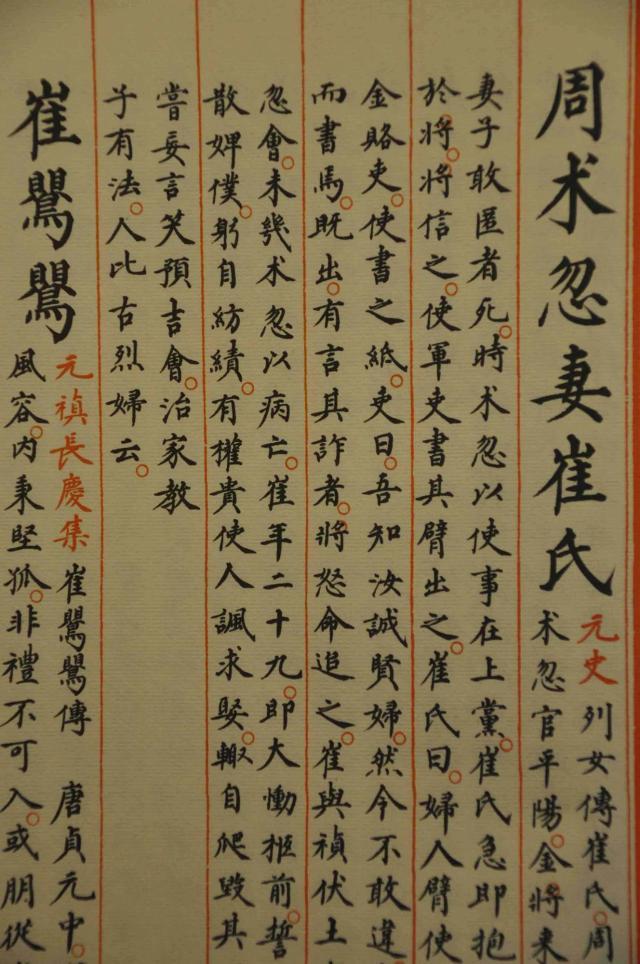 周术忽妻崔氏
元史列女傳崔氏周
术忽官平陽金將來
妻子敢匿者死時术忽以使事在上黨崔氏急即抱
於將將信之使軍吏書其臂出之崔氏曰婦人臂使
金賂吏使書之紙吏曰吾知汝誠賢婦然今不敢違
而書馬既出有言其詐者將怒命追之崔與禎伏土
忽會未幾术忽以病亡崔年二十九即大慟柩前誓
散婢僕躬自紡績有權貴使人諷求娶輙自爬毀其
嘗妄言笑預吉會治家教
子有法人比古烈婦云
崔鸎鸎
元禛長慶集崔鸎鸎傳 唐貞元中
風容内秉堅孤非禮不可入或朋從